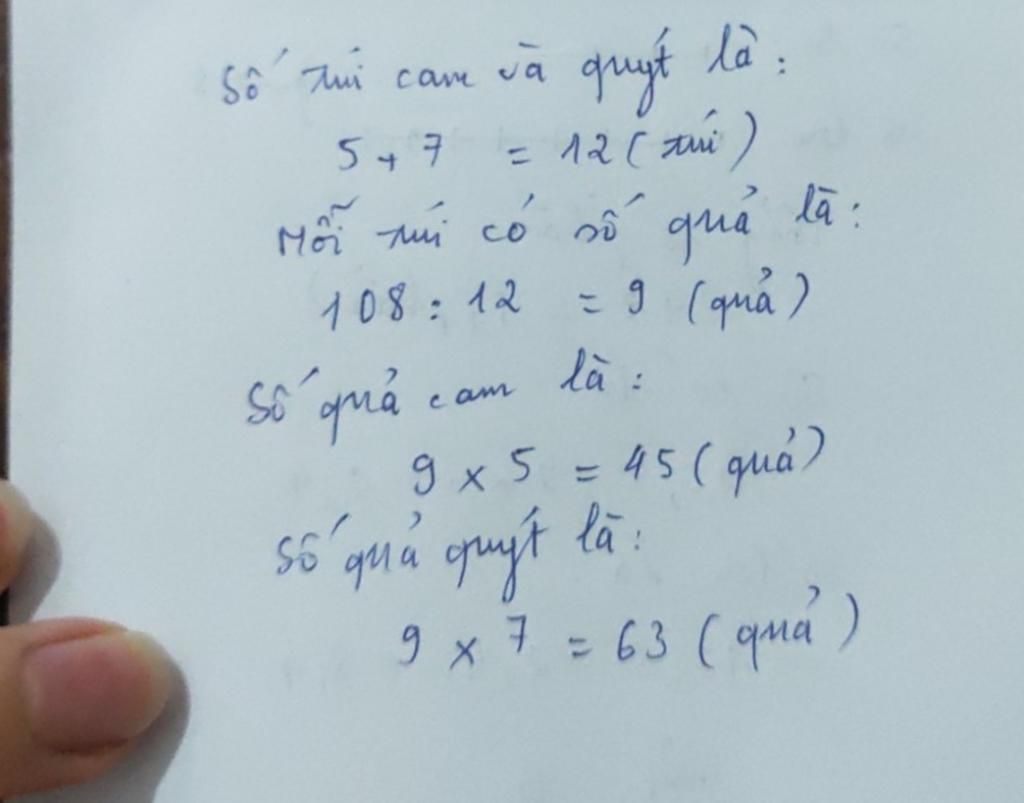 Số túi cam và quýt là:
5 + 7 = 12 (túi)
Mỗi túi có số quả là:
108 : 12 = 9 (quả)
Số quả cam là:
9 x 5 = 45 (quả)
Số quả quýt là:
9 x 7 = 63 (quả)